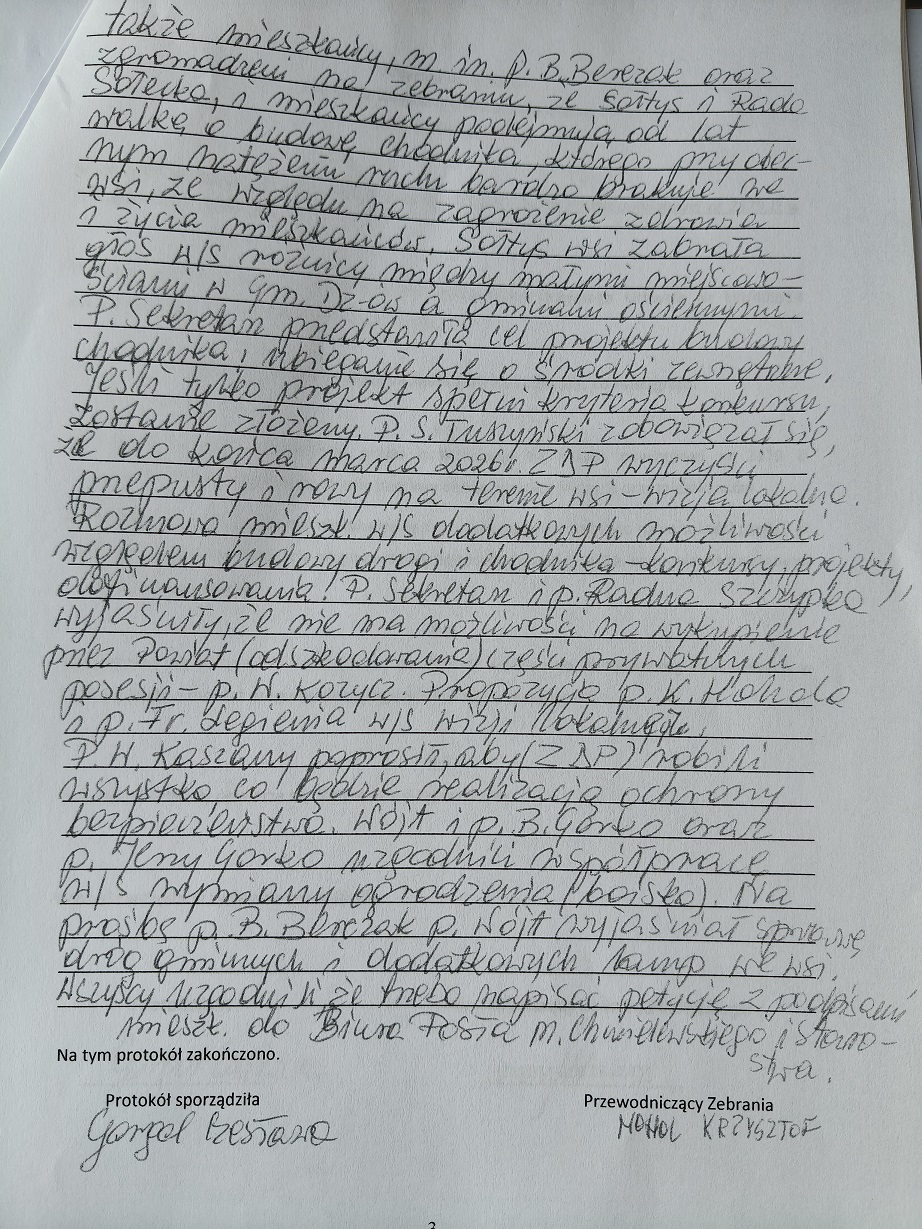 także mieszkańcy, m in. p. B. Berezak oraz
zgromadzeni na zebraniu, że Sołtys i Rada
Sołecka, i mieszkańcy podejmują od lat
walkę o budowę chodnika, którego przy obec-
nym natężeniu ruchu bardzo brakuje we
wsi, ze względu na zagrożenie zdrowia
i życia mieszkańców. Sołtys wsi zabrała
głos w/s różnicy między małymi miejscowo-
ściami w gm. Dz-ów a gminami ościennymi.
P. Sekretarz przedstawiła cel projektu budowy
chodnika, ubieganie się o środki zewnętrzne,
jeśli tylko projekt spełni kryteria konkursu,
zostanie złożony. P. S. Tuszyński zobowiązał się,
że do końca marca 2026 r. ZDP wyczyści
przepusty i rowy na terenie wsi – wizja lokalna.
Rozmowa mieszk. w/s dodatkowych możliwości
względem budowy drogi i chodnika – konkursy, projekty,
dofinansowania. P. Sekretarz i p. Radna Szczypka
wyjaśniły, że nie ma możliwości na wykupienie
przez Powiat (odszkodowania) części prywatnych
posesji – p. W. Korycz. Propozycja p. K. Mohola
i p. Fr. Legienia w/s wizji lokalnych.
P. W. Kaszany poprosił, aby (ZDP) robili
wszystko co będzie realizacją ochrony
bezpieczeństwa. Wójt i p. B. Gorko oraz
p. Jerzy Gorko uzgodnili współpracę
w/s wymiany ogrodzenia (boisko). Na
prośbę p. B. Berezak p. Wójt wyjaśniał sprawę
dróg gminnych i dodatkowych lamp we wsi.
Wszyscy uzgodnili że trzeba napisać petycję z podpisami
mieszk. do Biura Posła M. Chmielewskiego i Staro-
stwa.
Na tym protokół zakończono.
Protokół sporządziła
Przewodniczący Zebrania
MOHOL KRZYSZTOF
3